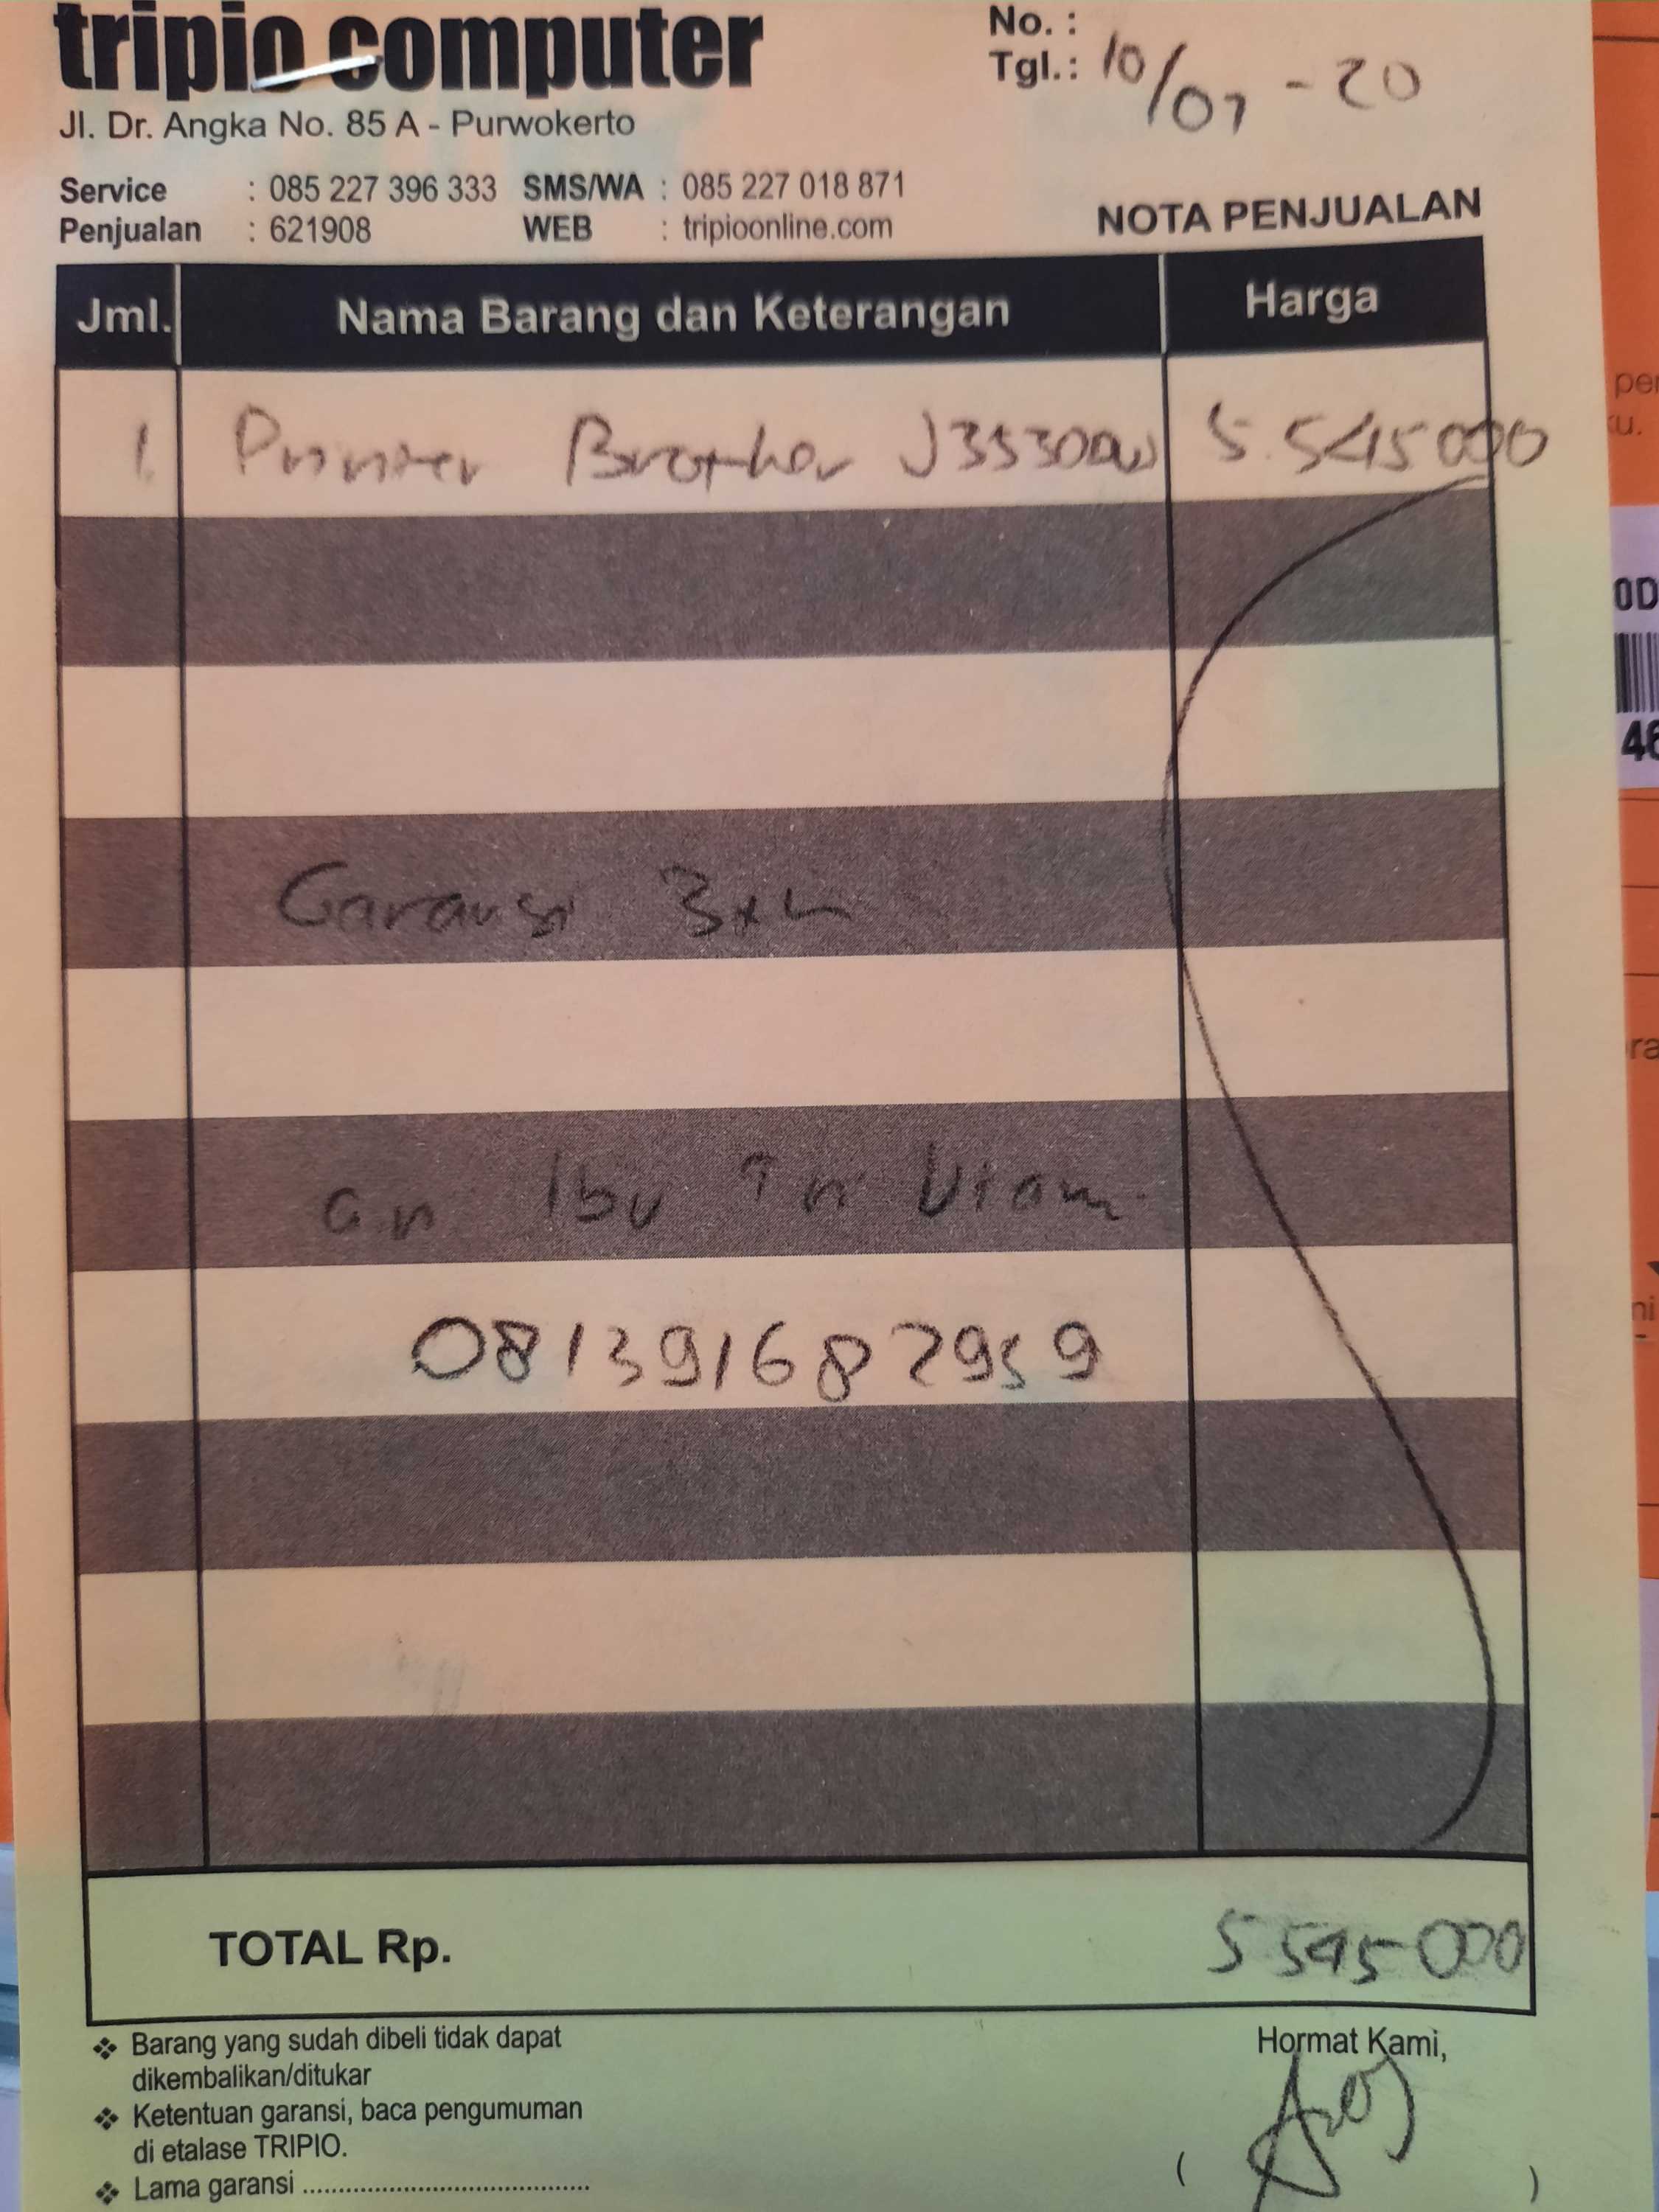 tripio computer
No. :
Tgl.: 10/07 - 20
Jl. Dr. Angka No. 85 A - Purwokerto
Service : 085 227 396 333 SMS/WA : 085 227 018 871
Penjualan : 621908 WEB : tripioonline.com
NOTA PENJUALAN
Jml. Nama Barang dan Keterangan Harga
1. Printer Brother 5.545000
Garansi
an Ibu Tri
081391687959
TOTAL Rp. 5 545 000
Barang yang sudah dibeli tidak dapat
dikembalikan/ditukar
Ketentuan garansi, baca pengumuman
di etalase TRIPIO.
Lama garansi ........................................
Hormat Kami,
( )
0D
46